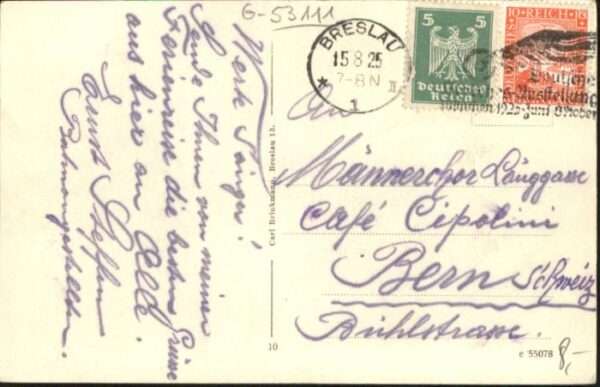 G-53111
Werte Sänger!
Sende Ihnen von meiner
Ferienreise die besten Grüsse
aus hier an Alle.
Ernst Steffen
Carl Brinkmann, Breslau 13.
10
BRESLAU
15.8.25
7-8 N
* 1
5 5
Deutsches
Reich
REICH
Deutsche
Ausstellung
München 1925 Juni Oktober
An
Männerchor Länggasse
Café Cipolini
Bern Schweiz
Bühlstrasse.
e 55078
8,-